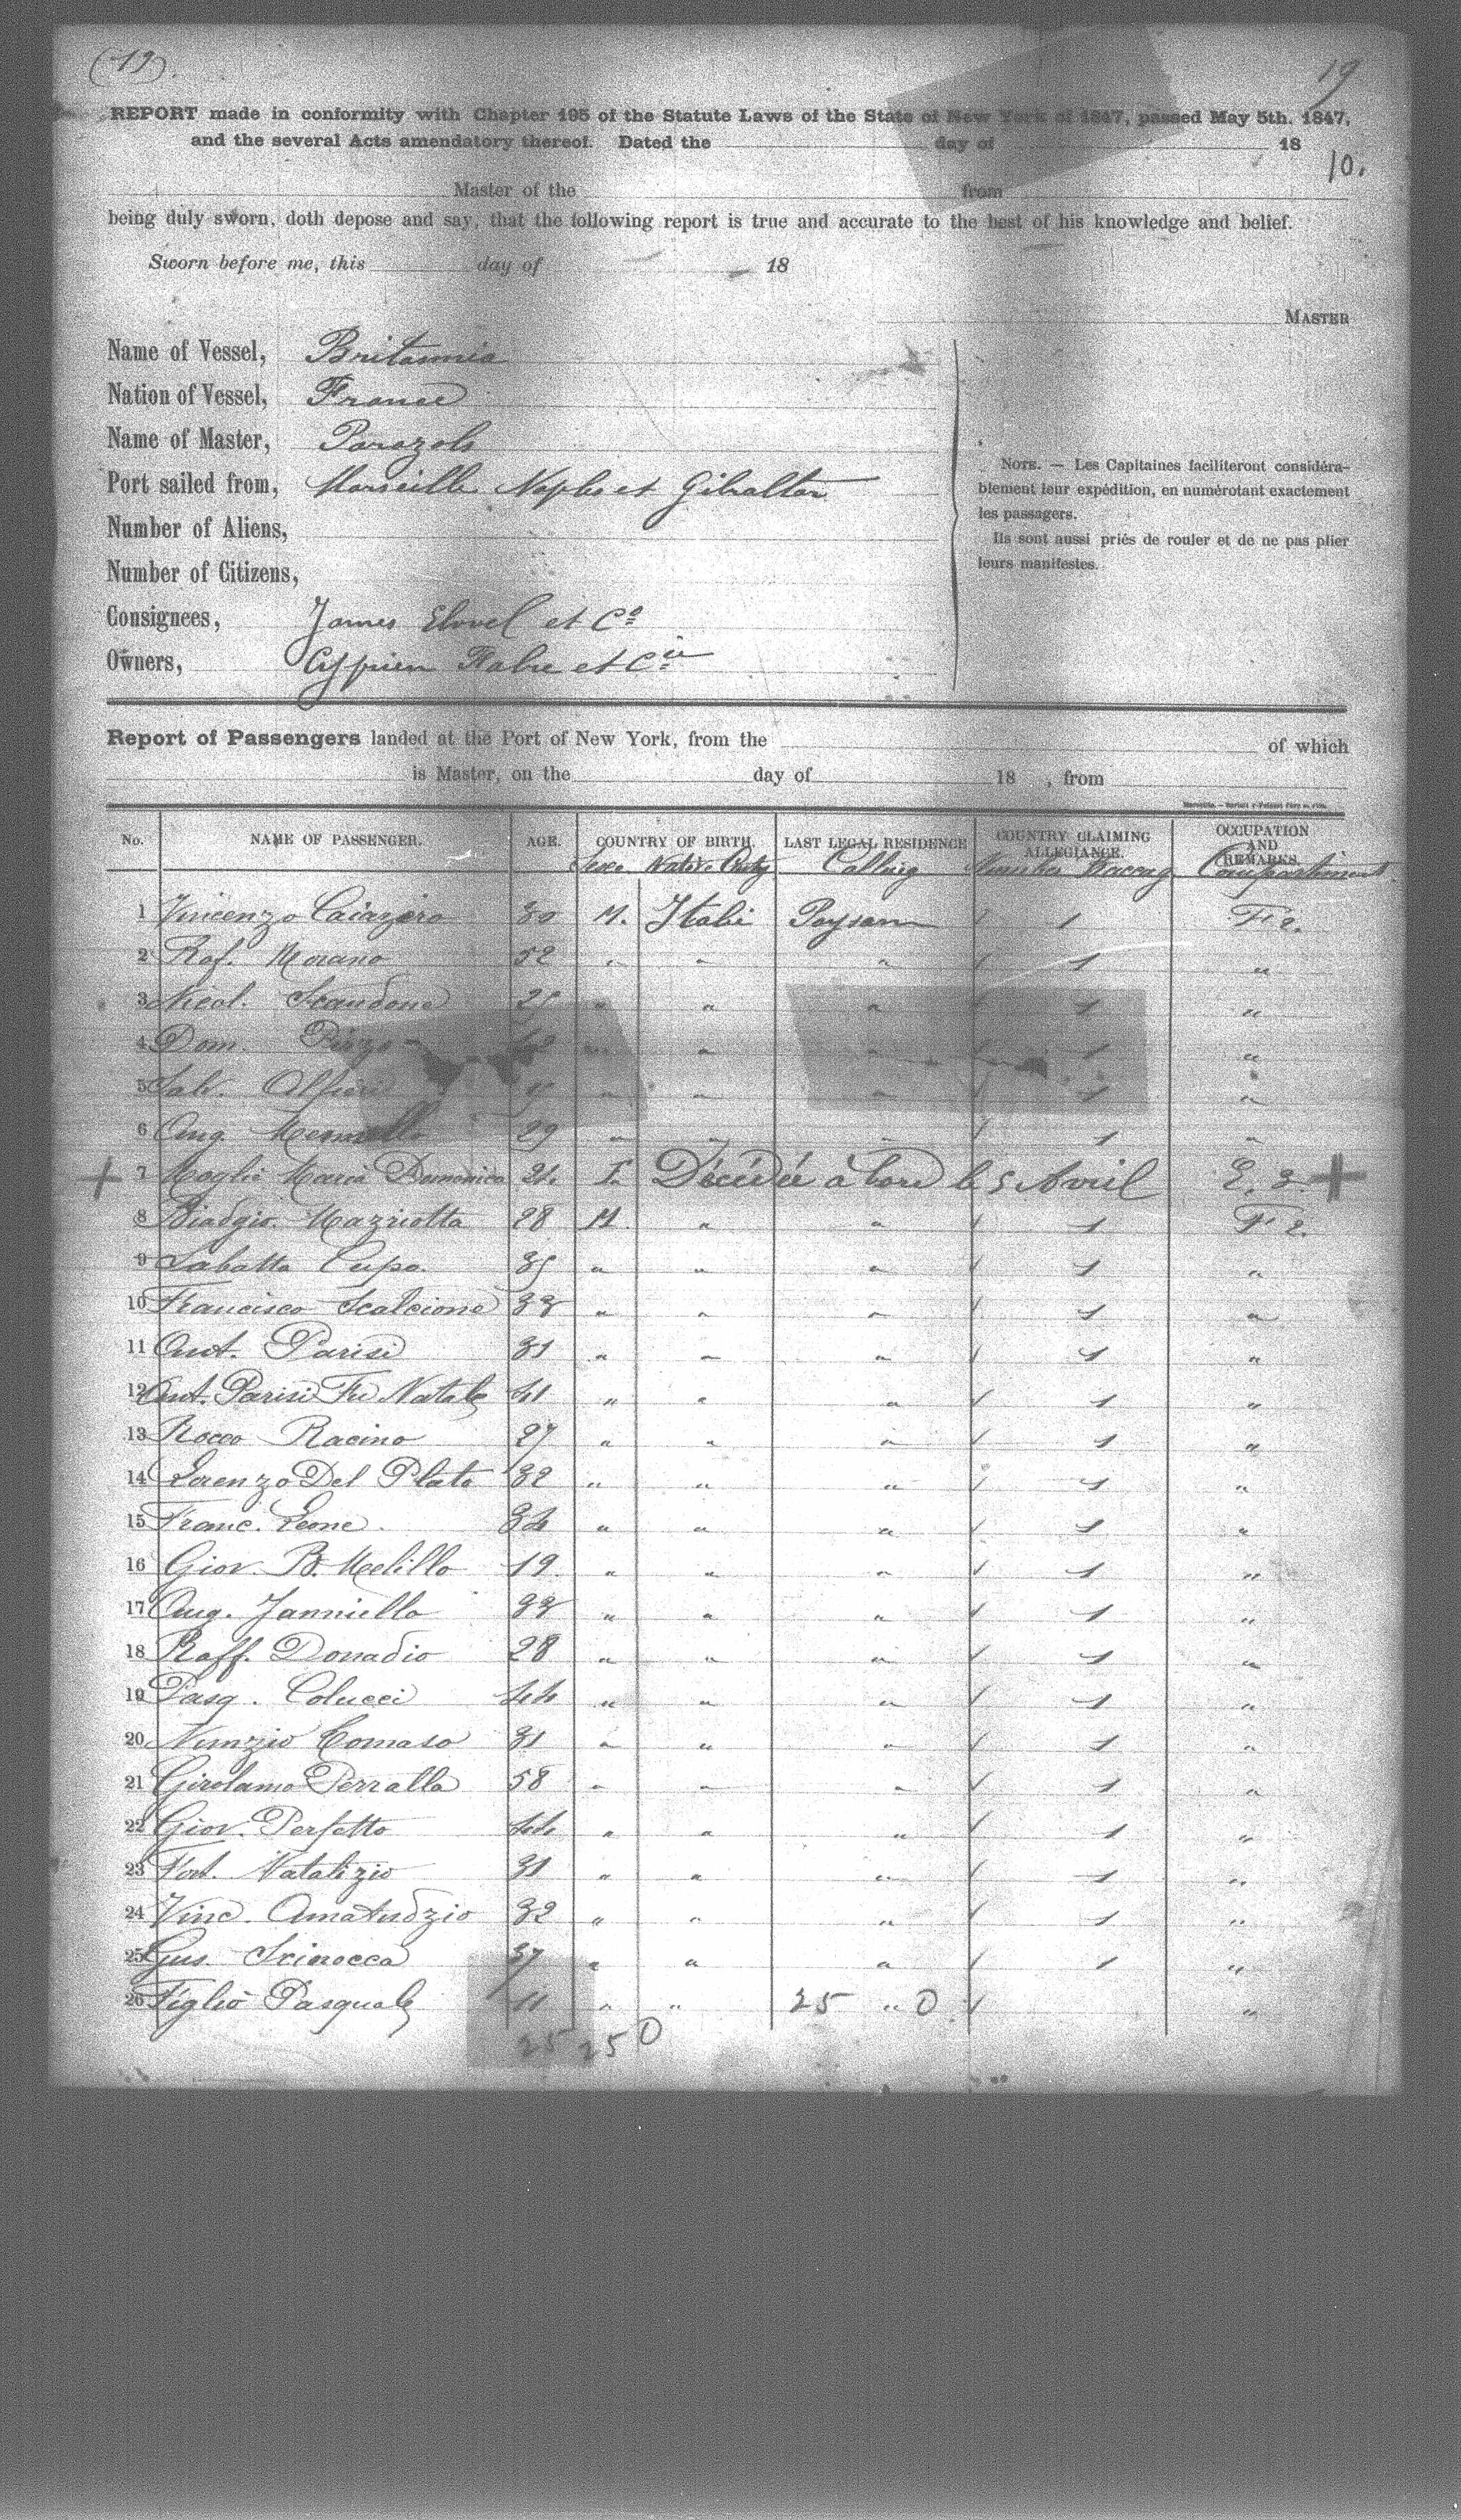 (19).
19
REPORT made in conformity with Chapter 195 of the Statute Laws of the State of New York of 1847, passed May 5th, 1847,
and the several Acts amendatory thereof. Dated the day of 18
10.
Master of the from
being duly sworn, doth depose and say, that the following report is true and accurate to the best of his knowledge and belief.
Sworn before me, this day of 18
MASTER
Name of Vessel, Britannia
Nation of Vessel, France
Name of Master, Parazols
Port sailed from, Marseille Naples et Gibraltar
Number of Aliens,
Number of Citizens,
Consignees, James Elwel et Co
Owners, Cyprien Fabre et Cie
NOTE. — Les Capitaines faciliteront considéra-
blement leur expédition, en numérotant exactement
les passagers.
Ils sont aussi priés de rouler et de ne pas plier
leurs manifestes.
Report of Passengers landed at the Port of New York, from the of which
is Master, on the day of 18 , from
No. NAME OF PASSENGER. AGE. COUNTRY OF BIRTH. LAST LEGAL RESIDENCE COUNTRY CLAIMING ALLEGIANCE. OCCUPATION AND REMARKS.
Sexe Native Calling Number Compartiment
1 Vincenzo Caiazero 30 M. Italie Paysan 1 F 2.
2 Raf. Morano 52 " " " 1 "
3 Nicol. Scandone " " " 1 "
4 Dom. " " " 1 "
5 Salv. Alfieri " " " 1 "
6 Ang. 29 " " " 1 "
7 Moglie Maria Domenica 24 F. Décédée à bord le 5 Avril E. 3.
8 Biadgio Mazriotta 28 M. " " 1 F 2.
9 Sabatto Cupo. 35 " " " 1 "
10 Francisco Scalcione 33 " " " 1 "
11 Ant. Parisi 31 " " " 1 "
12 Ant. Parisi Fu Natale 41 " " " 1 "
13 Rocco Racino 27 " " " 1 "
14 Lorenzo Del Plato 32 " " " 1 "
15 Franc. Leone. 34 " " " 1 "
16 Giov. B. Melillo 19. " " " 1 "
17 Ang. Janniello 33 " " " 1 "
18 Raff. Donadio 28 " " " 1 "
19 Pasq. Colucci 44 " " " 1 "
20 Nunzio Comaso 31 " " " 1 "
21 Girolamo Perralla 58 " " " 1 "
22 Giov. Perfetto 44 " " " 1 "
23 Fort. Natalizio 31 " " " 1 "
24 Vinc. Amatudzio 32 " " " 1 "
25 Gus. Scinocca 37 " " " 1 "
26 Figlio Pasquale 11 " " 25 " 0 "
25 25 0